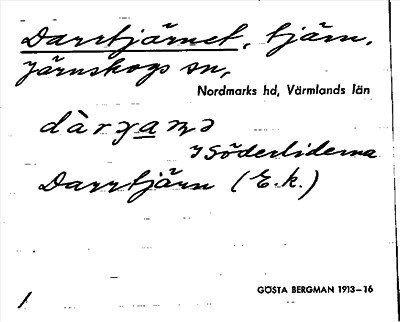 Darrtjärnet, tjärn.
Järnskogs sn,
Nordmarks hd, Värmlands län
i Söderliderna
Darrtjärn (E.k.)
GÖSTA BERGMAN 1913–16
1